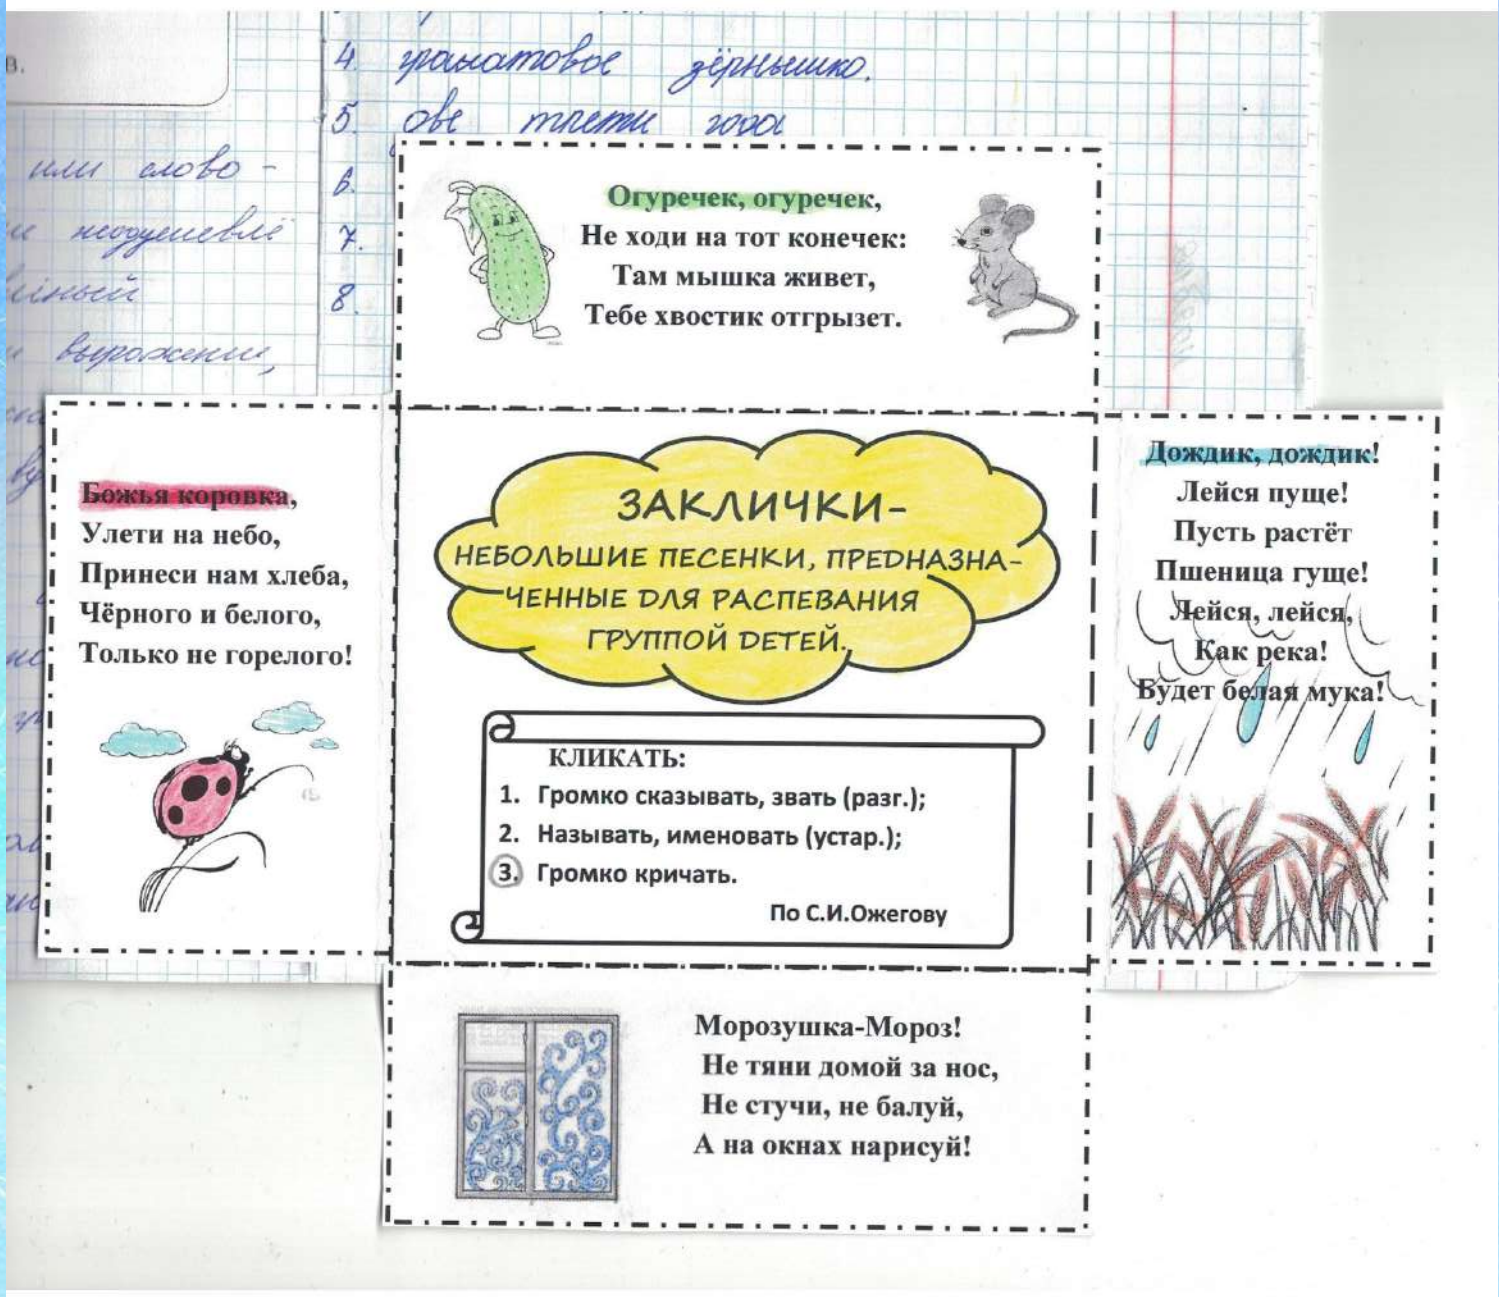 в.
4. гранатовое зёрнышко.
5. две трети года
или слово -
6.
неодушевлё
7.
8.
выражении,
Огуречек, огуречек,
Не ходи на тот конечек:
Там мышка живет,
Тебе хвостик отгрызет.
Божья коровка,
Улети на небо,
Принеси нам хлеба,
Чёрного и белого,
Только не горелого!
ЗАКЛИЧКИ-
НЕБОЛЬШИЕ ПЕСЕНКИ, ПРЕДНАЗНА-
ЧЕННЫЕ ДЛЯ РАСПЕВАНИЯ
ГРУППОЙ ДЕТЕЙ.
КЛИКАТЬ:
1. Громко сказывать, звать (разг.);
2. Называть, именовать (устар.);
3. Громко кричать.
По С.И.Ожегову
Дождик, дождик!
Лейся пуще!
Пусть растёт
Пшеница гуще!
Лейся, лейся,
Как река!
Будет белая мука!
Морозушка-Мороз!
Не тяни домой за нос,
Не стучи, не балуй,
А на окнах нарисуй!